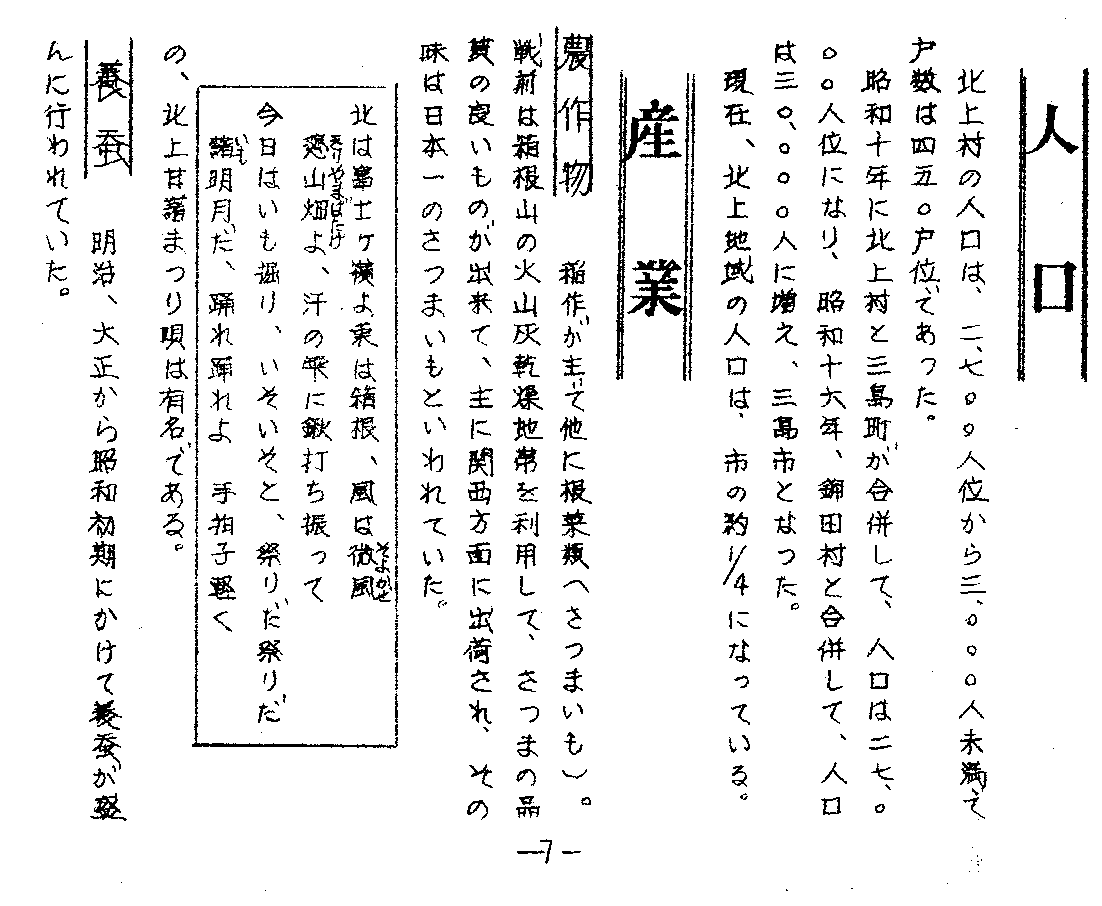 人口
北上村の人口は、二、七〇〇人位から三、〇〇〇人未満で
戸数は四五〇戸位であった。
昭和十年に北上村と三島町が合併して、人口は二七、〇
〇〇人位になり、昭和十六年、錦田村と合併して、人口
は三〇、〇〇〇人に増え、三島市となった。
現在、北上地域の人口は、市の約1/4になっている。
産業
農作物 稲作が主で他に根菜類(さつまいも)。
戦前は箱根山の火山灰乾燥地帯を利用して、さつまの品
質の良いものが出来て、主に関西方面に出荷され、その
味は日本一のさつまいもといわれていた。
北は富士ヶ嶺よ東は箱根、風は微風そよかぜ
山畑よ、汗の雫に鍬打ち振って
今日はいも掘り、いそいそと、祭りだ祭りだ
藷いも明月だ、踊れ踊れよ 手拍子軽く
の、北上甘藷まつり唄は有名である。
養蚕 明治、大正から昭和初期にかけて養蚕が盛
んに行われていた。
—7—